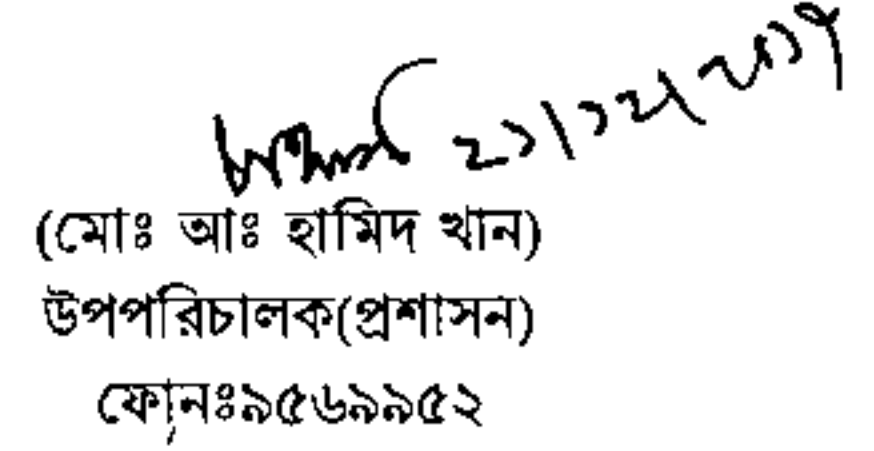 ২১/১২/২০১৭
(মোঃ আঃ হামিদ খান)
উপপরিচালক(প্রশাসন)
ফোনঃ৯৫৬৯৯৫২